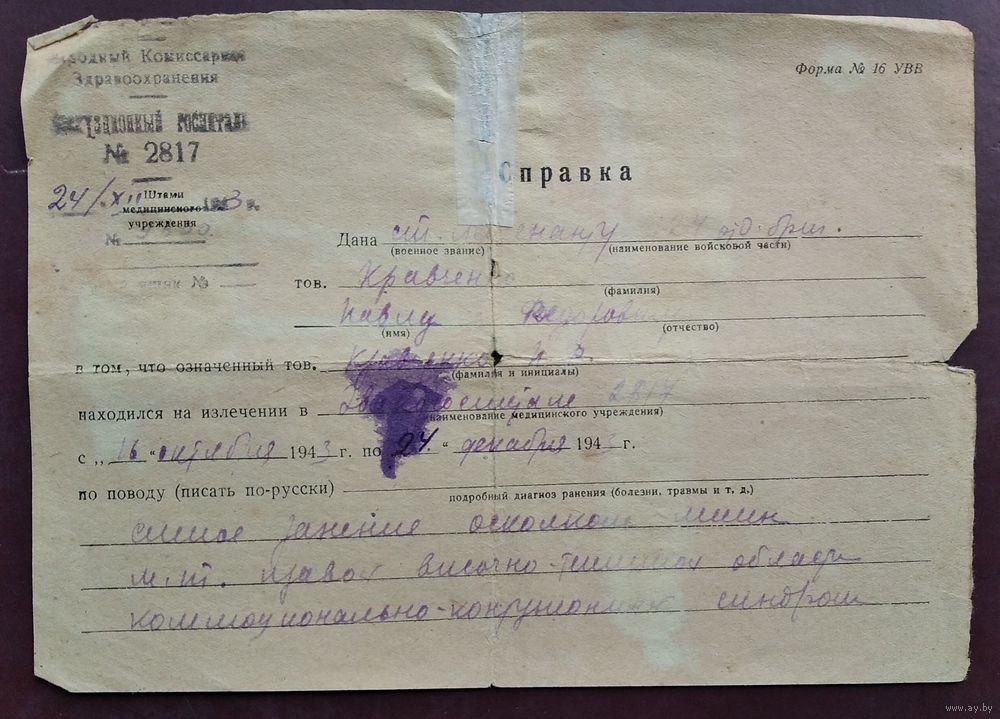 Народный Комиссариат
Здравоохранения
госпиталь
№ 2817
Форма № 16 УВВ
Справка
24/XII 1943 г.
Штамп
медицинского
учреждения
№
№
Дана ст. лейтенанту 24 отд. бриг.
(военное звание) (наименование войсковой части)
тов. Кравченко
(фамилия)
Павлу Федорович
(имя) (отчество)
в том, что означенный тов. Кравченко П. Ф.
(фамилия и инициалы)
находился на излечении в Эвакогоспитале 2817
(наименование медицинского учреждения)
с „ 16 “ октября 1943 г. по „ 24 “ декабря 1943 г.
по поводу (писать по-русски)
подробный диагноз ранения (болезни, травмы и т. д.)
слепое ранение осколком мины
м.т. правой височно-теменной области
коммоционально-контузионный синдром
www.ay.by